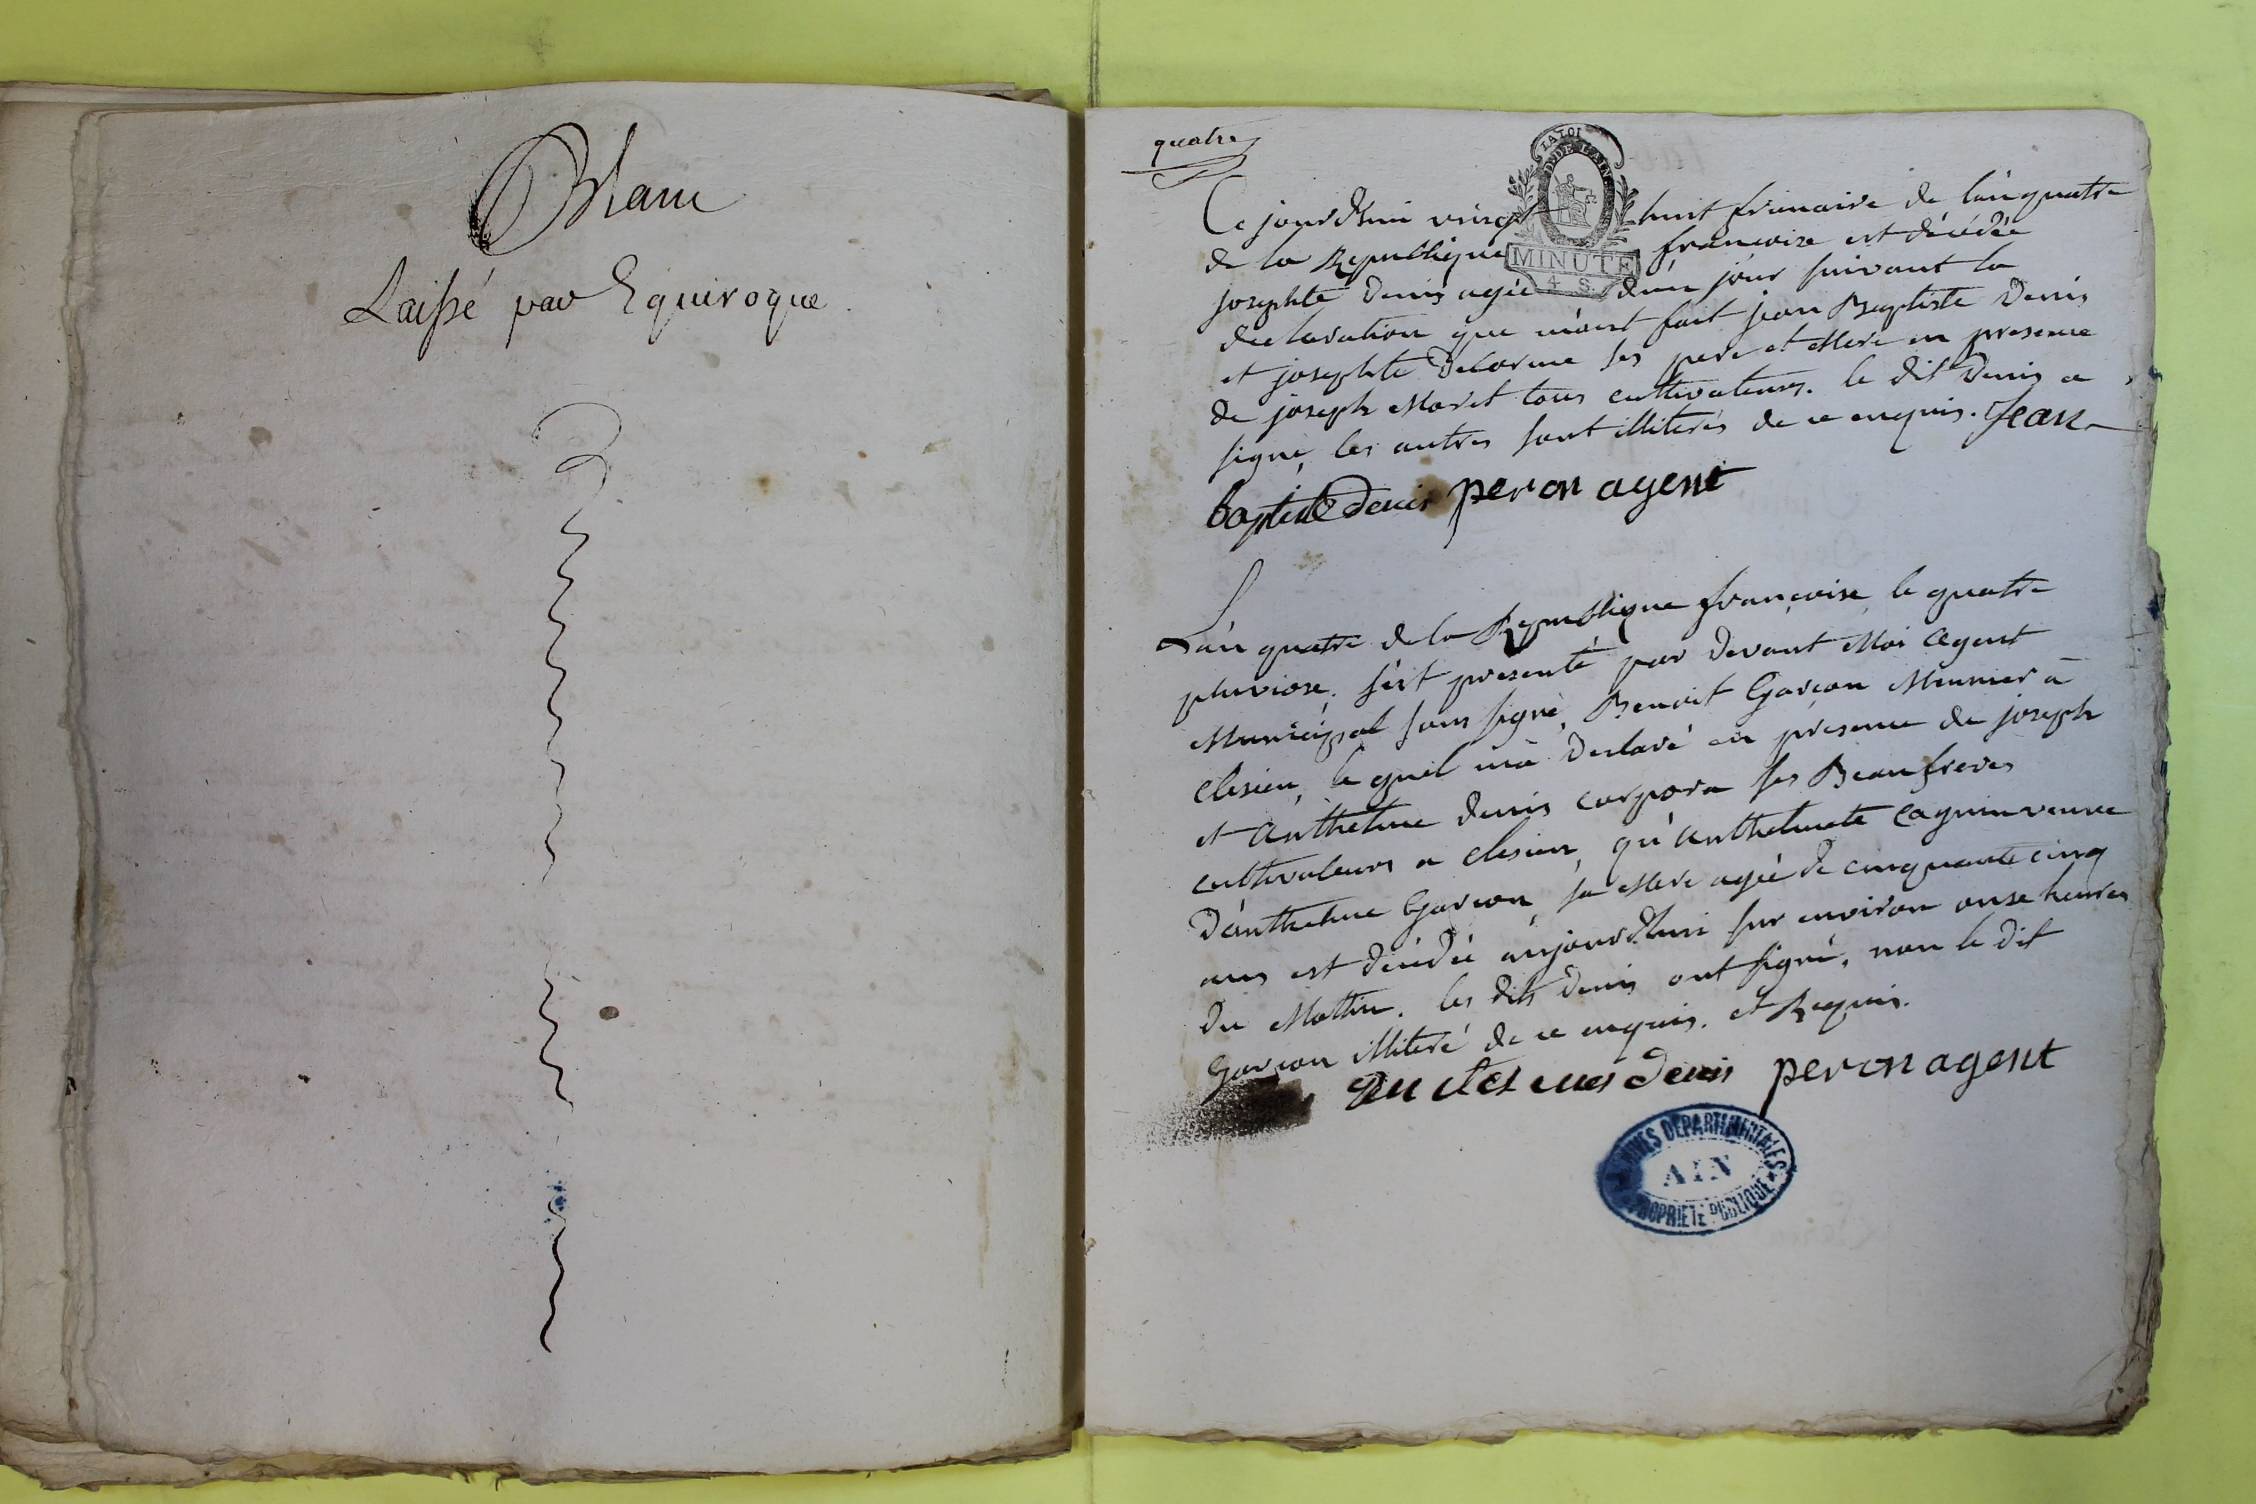 Blanc
Laissé par Equivoque.
quatre
LA LOI
D. DE L'AIN
MINUTE
4 S.
Ce jourdhui vingt huit frimaire de l'an quatre
de la Republique francoise est décédée
josephte Denis agée d'un jour suivant la
declaration que m'ont fait jean Baptiste Denis
et josephte Delorme ses pere et Mere en presence
de joseph Moret tous cultivateurs. le dit Denis a
signé, les autres sont illiterés de ce enquis. Jean
baptiste denis peron agent
L'an quatre de la Republique françoise le quatre
pluviose. s'est presenté par devant Moi Agent
Municipal sous signé, Benoit Garcon Meunier à
Clesieu, le quel m'a declaré en presence de joseph
et Anthelme denis ses Beaufreres
cultivateurs a Clesieu, qu'Anthelmete veuve
D'anthelme Garcon, sa Mere agée de cinquante cinq
ans est décédée aujourdhui sur environ onse heures
du Mattin. les dits Denis ont signé, non le dit
Garcon illiteré de ce enquis. et Requis.
denis peron agent
ARCHIVES DEPARTEMENTALES
AIN
PROPRIETE PUBLIQUE